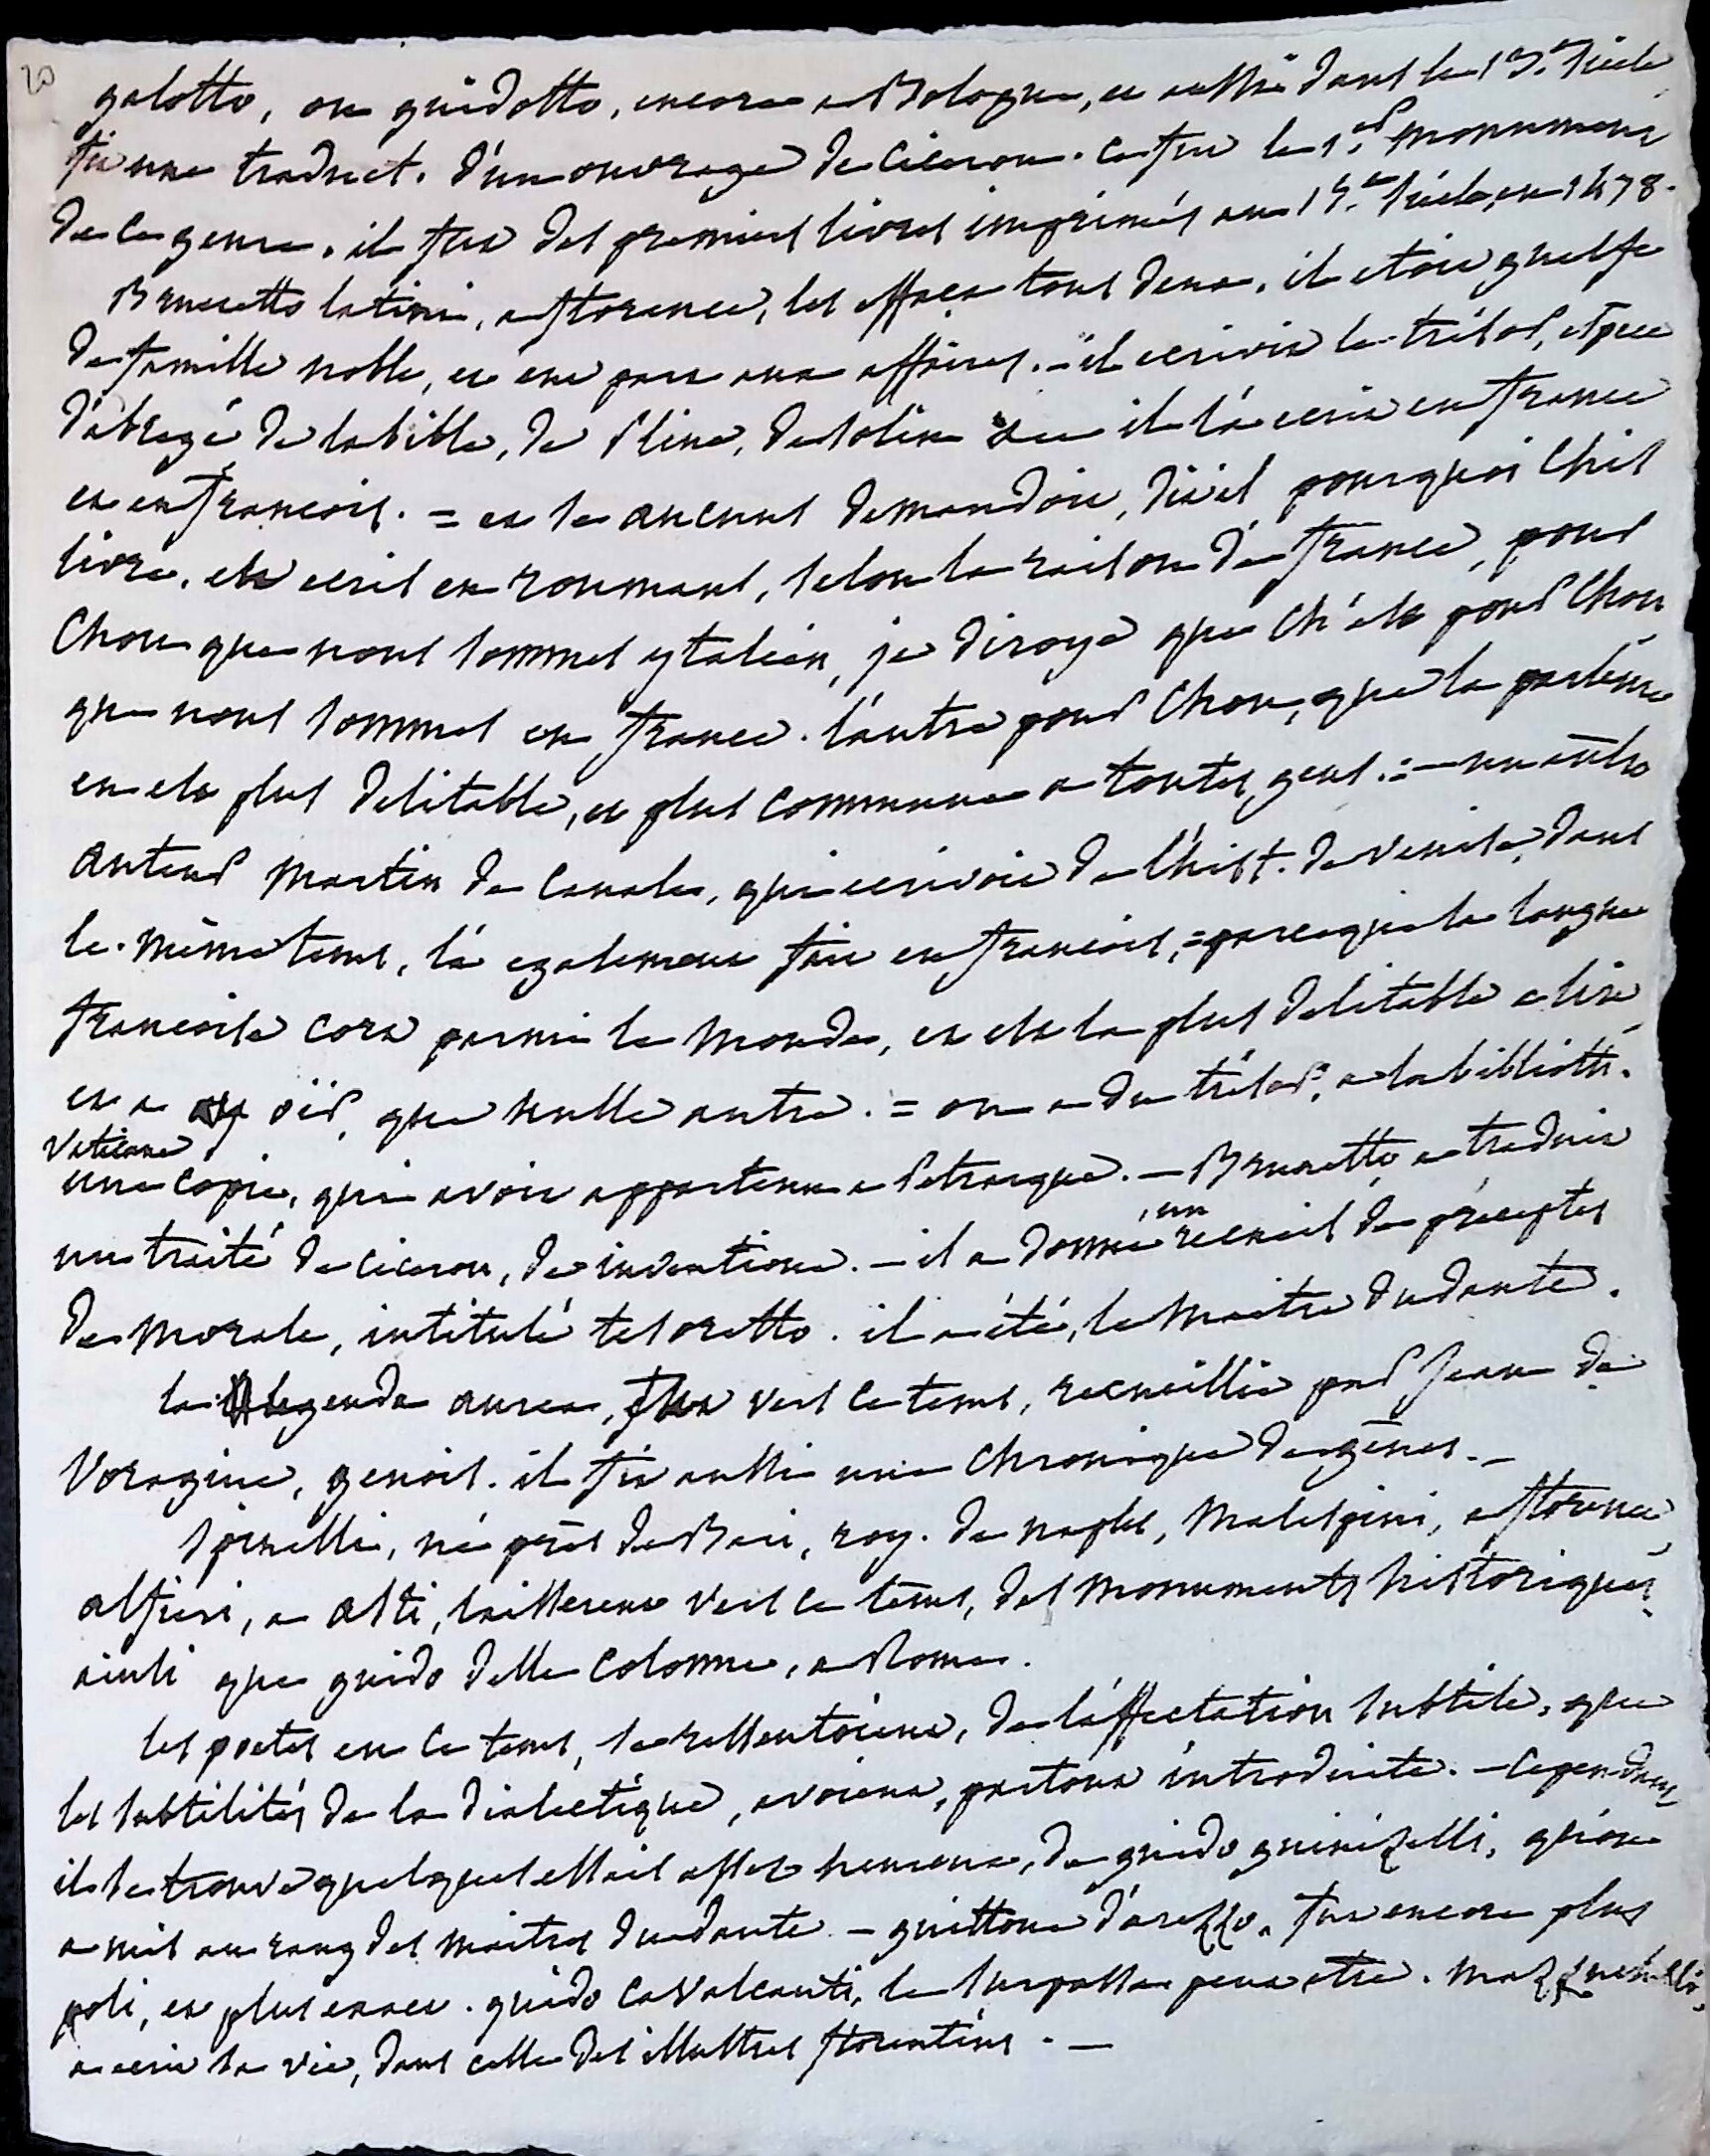 20
galotto, ou guidotto, encore a Bologne, et aussi dans le 13.e siecle
fit une traduct. d'un ouvrage de Ciceron. ce fut le 1.er monument
de ce genre. il fut des premiers livres imprimés au 15.e siecle, en 1478.
Brunetto latini, a florence, les effaça tous deux. il etoit guelfe
de famille noble, et eut part aux affaires. - il ecrivit le trésor, espece
d'abregé de la bible, de Pline, de solin &c il l'a ecrit en france
et en françois. = et se aucuns demandoit, dit il pourquoi chis
livre, est ecris en roumans, selon la raison de france, pour
chou que nous sommes ytalien, je diroye que ch'est pour chou
que nous sommes en france. l'autre pour chou, que la parleure
en est plus delitable, et plus commune a toutes gens. = - un autre
auteur martin da Canale, qui ecrivoit de l'hist. de venise, dans
le même tems, l'a egalement fait en françois, = parceque la langue
françoise cort parmi le monde, et est la plus delitable a lire
et a oïr, que nulle autre. = on a du trésor, a la biblioth.
Vaticane
une copie, qui avoit appartenu a Petrarque. - Brunetto, a traduit
un traité de ciceron, de inventione. - il a donné, un recueil de préceptes
de morale, intitulé tesoretto. il a été, le maitre du dante.
la legende aurea, fut vers ce tems, recueillie par Jean de
Voragine, genois. il fit aussi une chronique de gênes. -
spinelli, né près de Bari, roy. de naples, malespini, a florence,
alfieri, a asti, laisserent vers ce tems, des monuments historiques,
ainsi que guido delle colonne, a Rome.
les poetes en ce tems, se ressentoient, de l'affectation subtile, que
les subtilités de la dialectique, avoient, partout introduite. - cependant
il se trouve quelques essais assez heureux, de guido guinizelli, qu'on
a mis au rang des maitres du dante. - guittone d'arezzo, fut encore plus
poli, et plus exact. guido Cavalcanti, le surpassa peut etre. mazzuchelli,
a ecrit sa vie, dans celle des illustres florentins. -